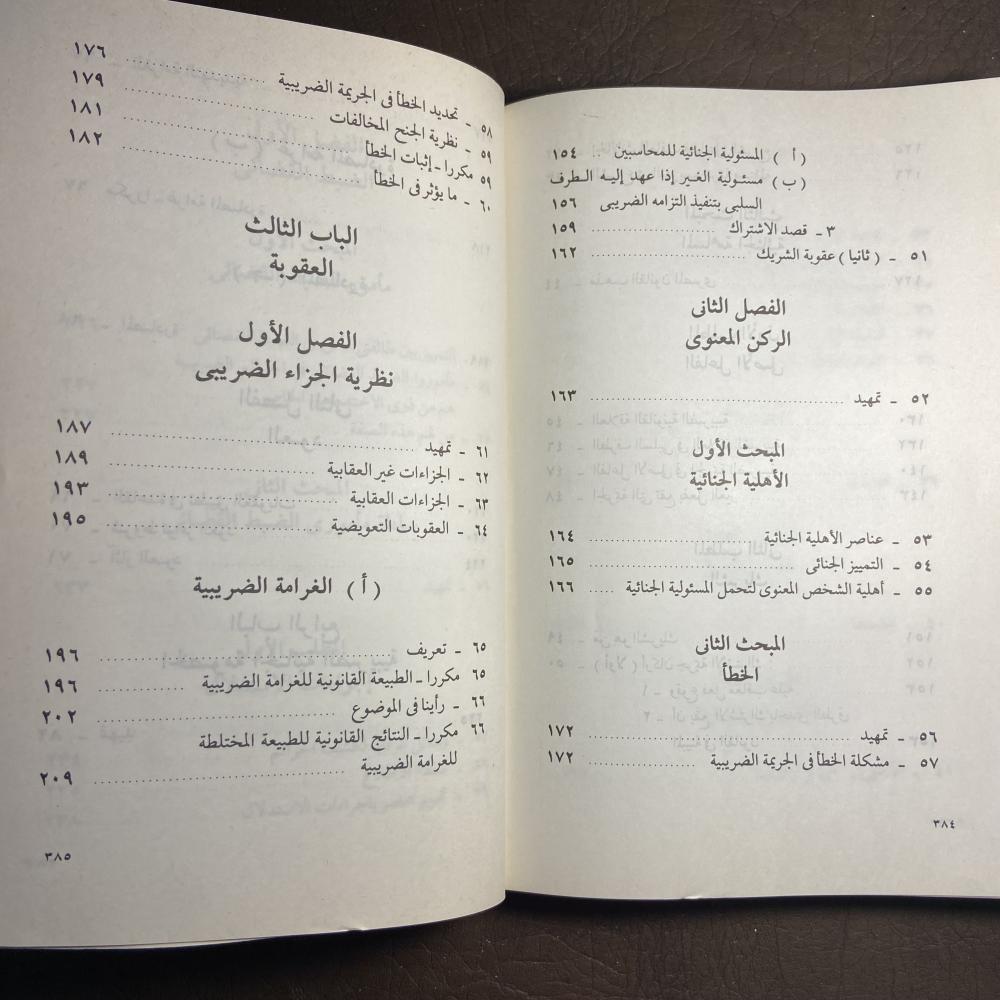 ( أ ) المسئولية الجنائية للمحاسبين .. ١٥٤
(ب) مسئولية الغير إذا عهد إليه الطرف
السلبى بتنفيذ التزامه الضريبى ١٥٦
٣ ـ قصد الاشتراك ........ ١٥٩
٥١ ـ ( ثانيا ) عقوبة الشريك ........ ١٦٢
الفصل الثانى
الركن المعنوى
٥٢ ـ تمهيد ........ ١٦٣
المبحث الأول
الأهلية الجنائية
٥٣ ـ عناصر الأهلية الجنائية ........ ١٦٤
٥٤ ـ التمييز الجنائى ........ ١٦٥
٥٥ ـ أهلية الشخص المعنوى لتحمل المسئولية الجنائية ..... ١٦٦
المبحث الثانى
الخطأ
٥٦ ـ تمهيد ........ ١٧٢
٥٧ ـ مشكلة الخطأ فى الجريمة الضريبية ........ ١٧٢
٣٨٤
٥٨ ـ تحديد الخطأ فى الجريمة الضريبية ........ ١٧٦
٥٩ ـ نظرية الجنح المخالفات ........ ١٧٩
٥٩ مكررا ـ إثبات الخطأ ........ ١٨١
٦٠ ـ ما يؤثر فى الخطأ ........ ١٨٢
الباب الثالث
العقوبة
الفصل الأول
نظرية الجزاء الضريبى
٦١ ـ تمهيد ........ ١٨٧
٦٢ ـ الجزاءات غير العقابية ........ ١٨٩
٦٣ ـ الجزاءات العقابية ........ ١٩٣
٦٤ ـ العقوبات التعويضية ........ ١٩٥
( أ ) الغرامة الضريبية
٦٥ ـ تعريف ........ ١٩٦
٦٥ مكررا ـ الطبيعة القانونية للغرامة الضريبية ........ ١٩٦
٦٦ ـ رأينا فى الموضوع ........ ٢٠٢
٦٦ مكررا ـ النتائج القانونية للطبيعة المختلطة
للغرامة الضريبية ........ ٢٠٩
٣٨٥